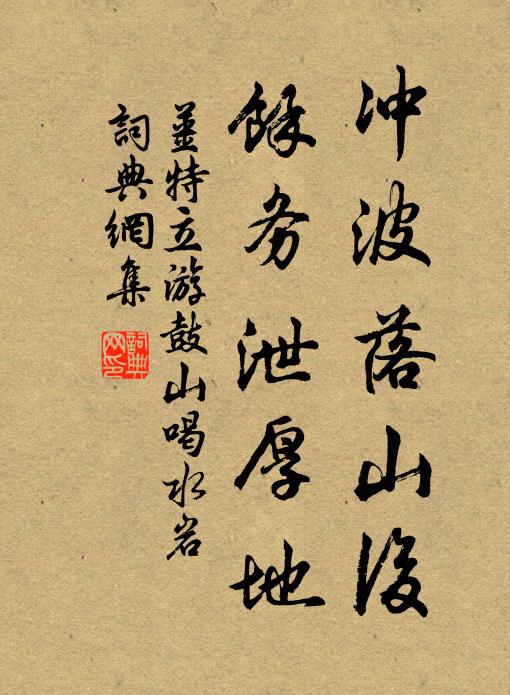 冲波落山后
餘务泄厚地
薑特立游鼓山喝水岩
詞典網集
詞典網印